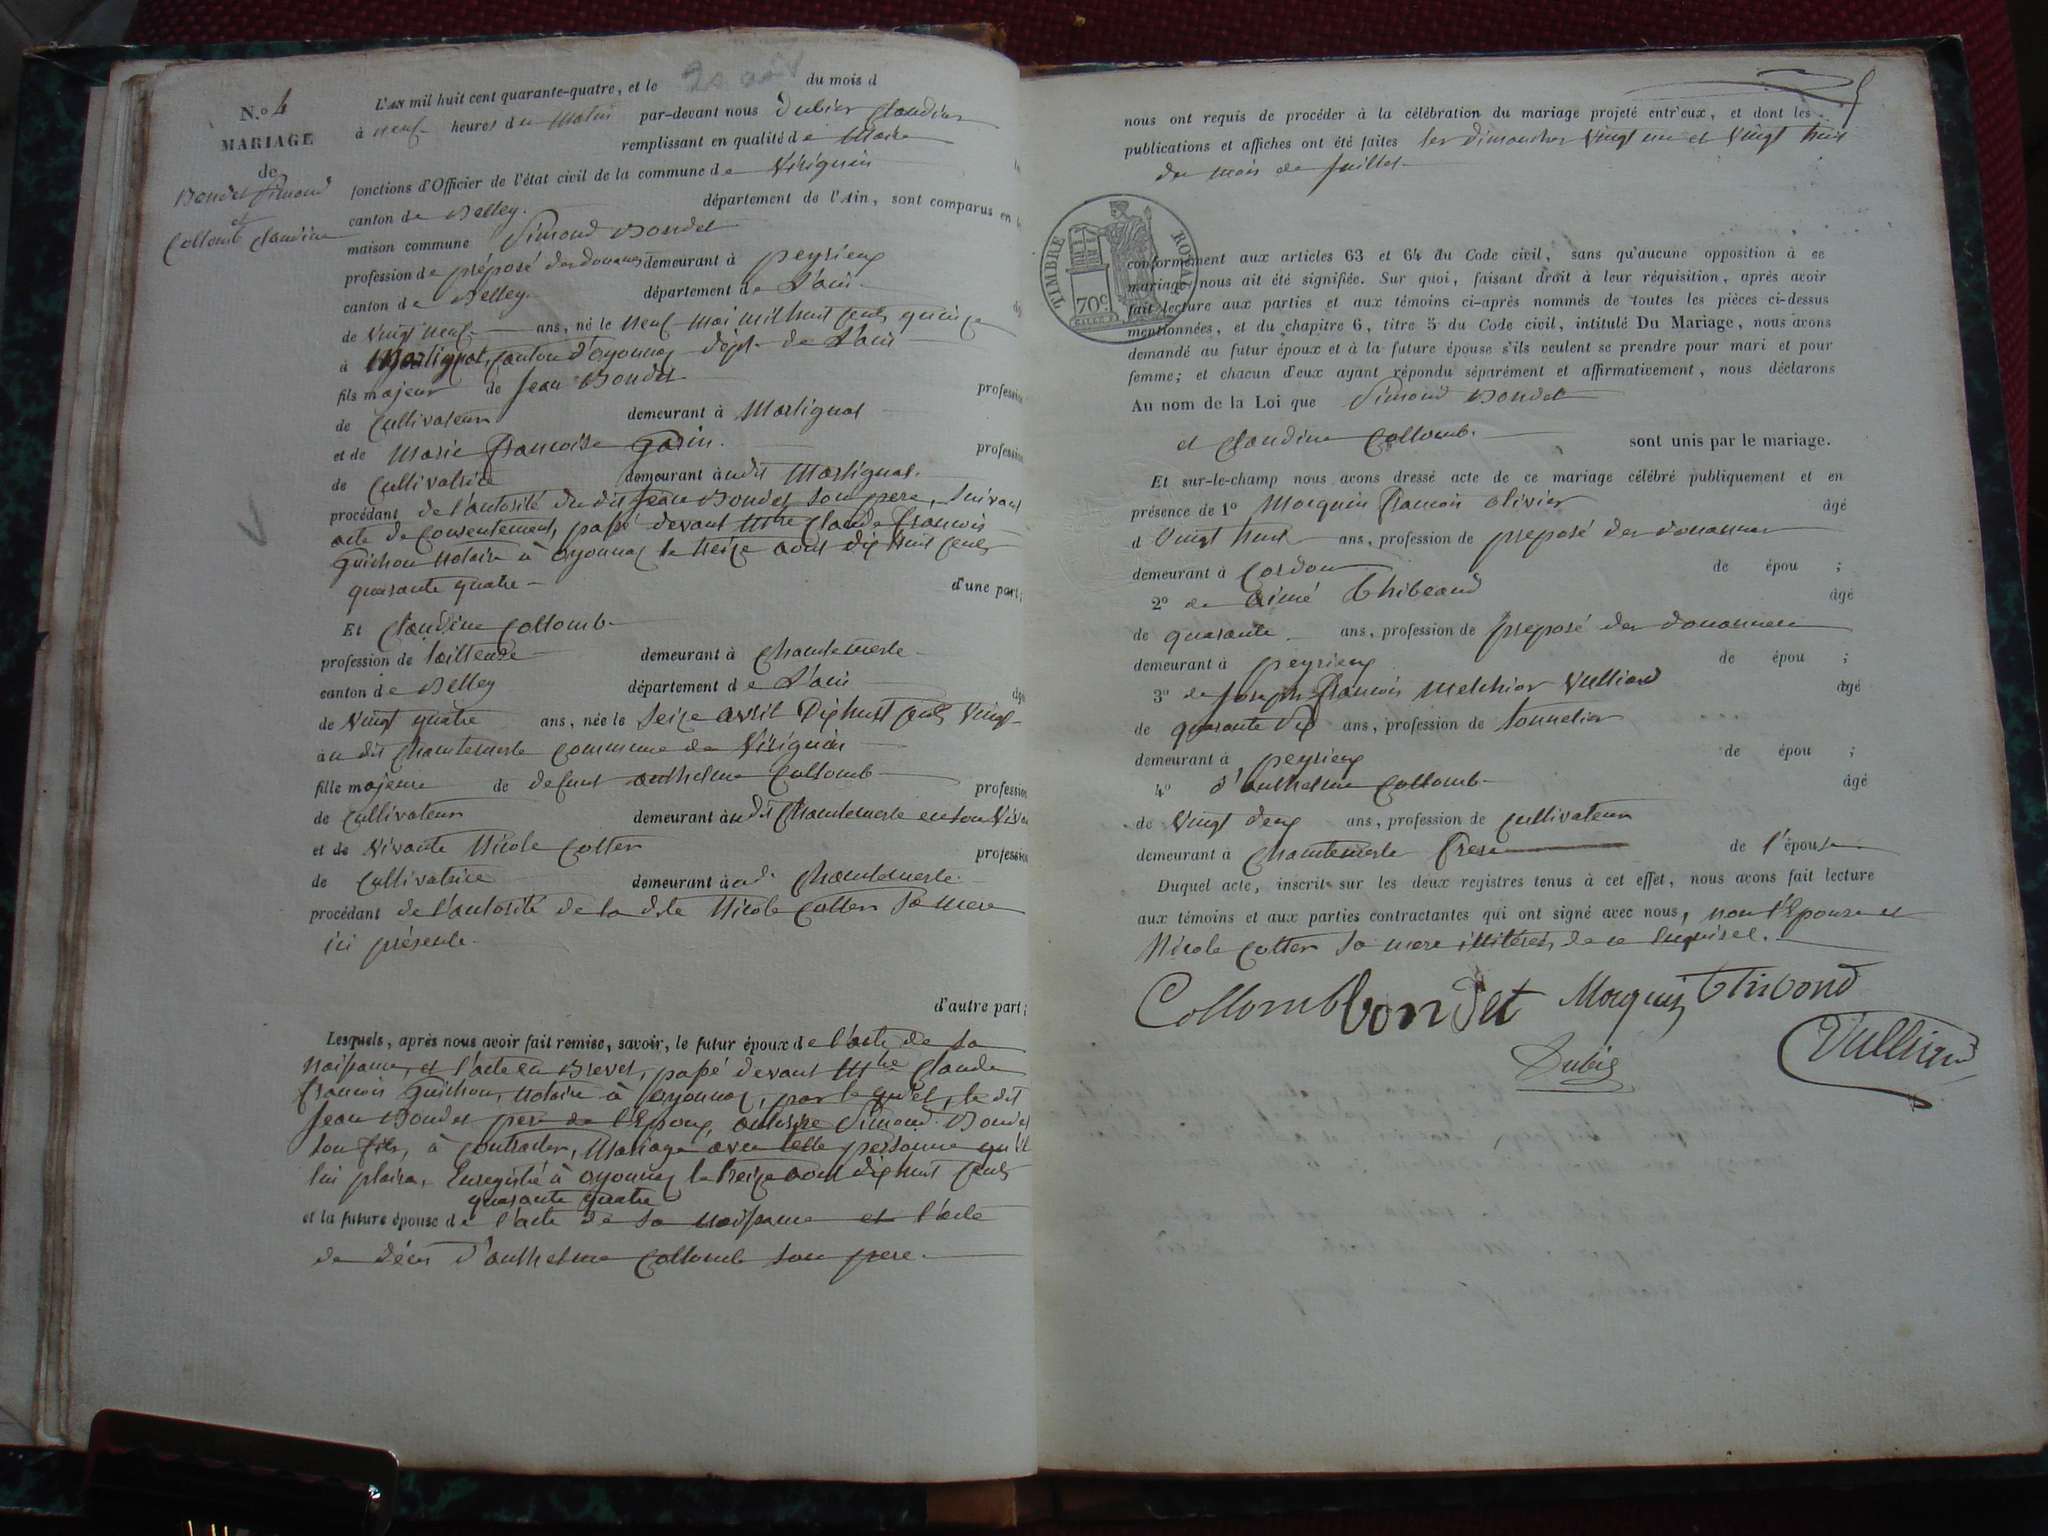 N.o 4
MARIAGE
de
Bondet Simond
et
Collomb Claudine
L'AN mil huit cent quarante-quatre, et le 20 août du mois d
à neuf heures du matin par-devant nous Dubier Claudier
remplissant en qualité de Maire
fonctions d'Officier de l'état civil de la commune de Virignin
canton de Belley. département de l'Ain, sont comparus en
maison commune Simond Bondet
profession de préposé des douanes demeurant à peyrieu
canton de Belley département de L'ain
de vingt neuf ans, né le neuf mai mil huit cents quinze
à Martignat, canton d'oyonnaz dépt. de L'ain
fils majeur de Jean Bondet profession
de Cultivateur demeurant à Martignat
et de Marie françoise Gasin. profession
de Cultivatrice demeurant à udit Martignat.
procédant de l'autorité du dit Jean Bondet son pere, suivant
acte de consentement, passé devant Mtre Claude françois
Guichon notaire à oyonnaz le treize aout dix huit cents
quarante quatre d'une part;
Et Claudine Collomb
profession de tailleuse demeurant à Chantemerle
canton de Belley département de L'ain
de vingt quatre ans, née le seize avril dix huit cents vingt
au dit Chantemerle commune de Virignin
fille majeure de defunt anthelme Collomb profession
de Cultivateur demeurant au dit Chantemerle en son viva
et de vivante Nicole Cotter profession
de Cultivatrice demeurant à ud. Chantemerle.
procédant de l'autorité de la dite Nicole Cotter sa mere
ici présente.
d'autre part;
Lesquels, après nous avoir fait remise, savoir, le futur époux de l'acte de sa
naissance, et l'acte en Brevet, passé devant Mtre Claude
françois Guichon, notaire à oyonnaz, par lequel, le dit
Jean Bondet pere de l'Epoux, autorise Simond Bondet
son fils, à contracter, Mariage avec telle personne qu'il
lui plaira, Enregistré à oyonnaz le treize aout dix huit cents
quarante quatre
et la future épouse de l'acte de sa naissance et l'acte
de décès d'anthelme Collomb son pere.
nous ont requis de procéder à la célébration du mariage projeté entr'eux, et dont les
publications et affiches ont été faites les dimanches vingt un et vingt huit
du mois de Juillet
TIMBRE ROYAL
70c
conformément aux articles 63 et 64 du Code civil, sans qu'aucune opposition à ce
mariage nous ait été signifiée. Sur quoi, faisant droit à leur réquisition, après avoir
fait lecture aux parties et aux témoins ci-après nommés de toutes les pièces ci-dessus
mentionnées, et du chapitre 6, titre 5 du Code civil, intitulé Du Mariage, nous avons
demandé au futur époux et à la future épouse s'ils veulent se prendre pour mari et pour
femme; et chacun d'eux ayant répondu séparément et affirmativement, nous déclarons
Au nom de la Loi que Simond Bondet
et Claudine Collomb. sont unis par le mariage.
Et sur-le-champ nous avons dressé acte de ce mariage célébré publiquement et en
présence de 1o Morquin françois olivier âgé
d vingt huit ans, profession de préposé des douannes
demeurant à Cordon de épou ;
2o de aimé Thibeaud âgé
de quarante ans, profession de préposé des douannes
demeurant à peyrieu de épou ;
3o de Joseph françois Melchior Vulliard âgé
de quarante dix ans, profession de tonnelier
demeurant à peyrieu de épou ;
4o d'anthelme Collomb âgé
de vingt deux ans, profession de Cultivateur
demeurant à Chantemerle frere de l'épouse
Duquel acte, inscrit sur les deux registres tenus à cet effet, nous avons fait lecture
aux témoins et aux parties contractantes qui ont signé avec nous, non l'Epouse et
Nicole Cotter sa mere illiterés, de ce Enquises.
Collomb bondet Morquin Thibond
Dubier Vulliard